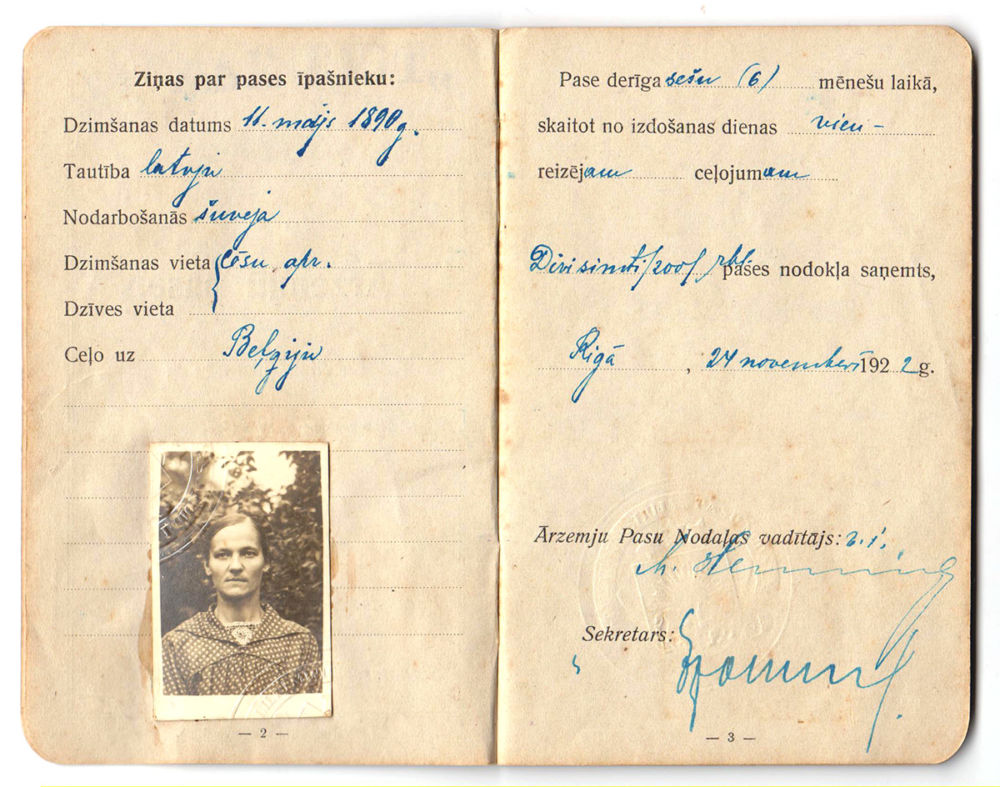 Ziņas par pases īpašnieku:
Dzimšanas datums 11. maijs 1890g.
Tautība latvju
Nodarbošanās šuvēja
Dzimšanas vieta Cēsu apr.
Dzīves vieta
Ceļo uz Beļģiju
— 2 —
Pase derīga sešu (6) mēnešu laikā,
skaitot no izdošanas dienas vien-
reizējam ceļojumam
Divisimti /200/ rbļ. pases nodokļa saņemts,
Rīgā , 24 novemberī 1922g.
Ārzemju Pasu Nodaļas vadītājs:
Sekretars:
— 3 —